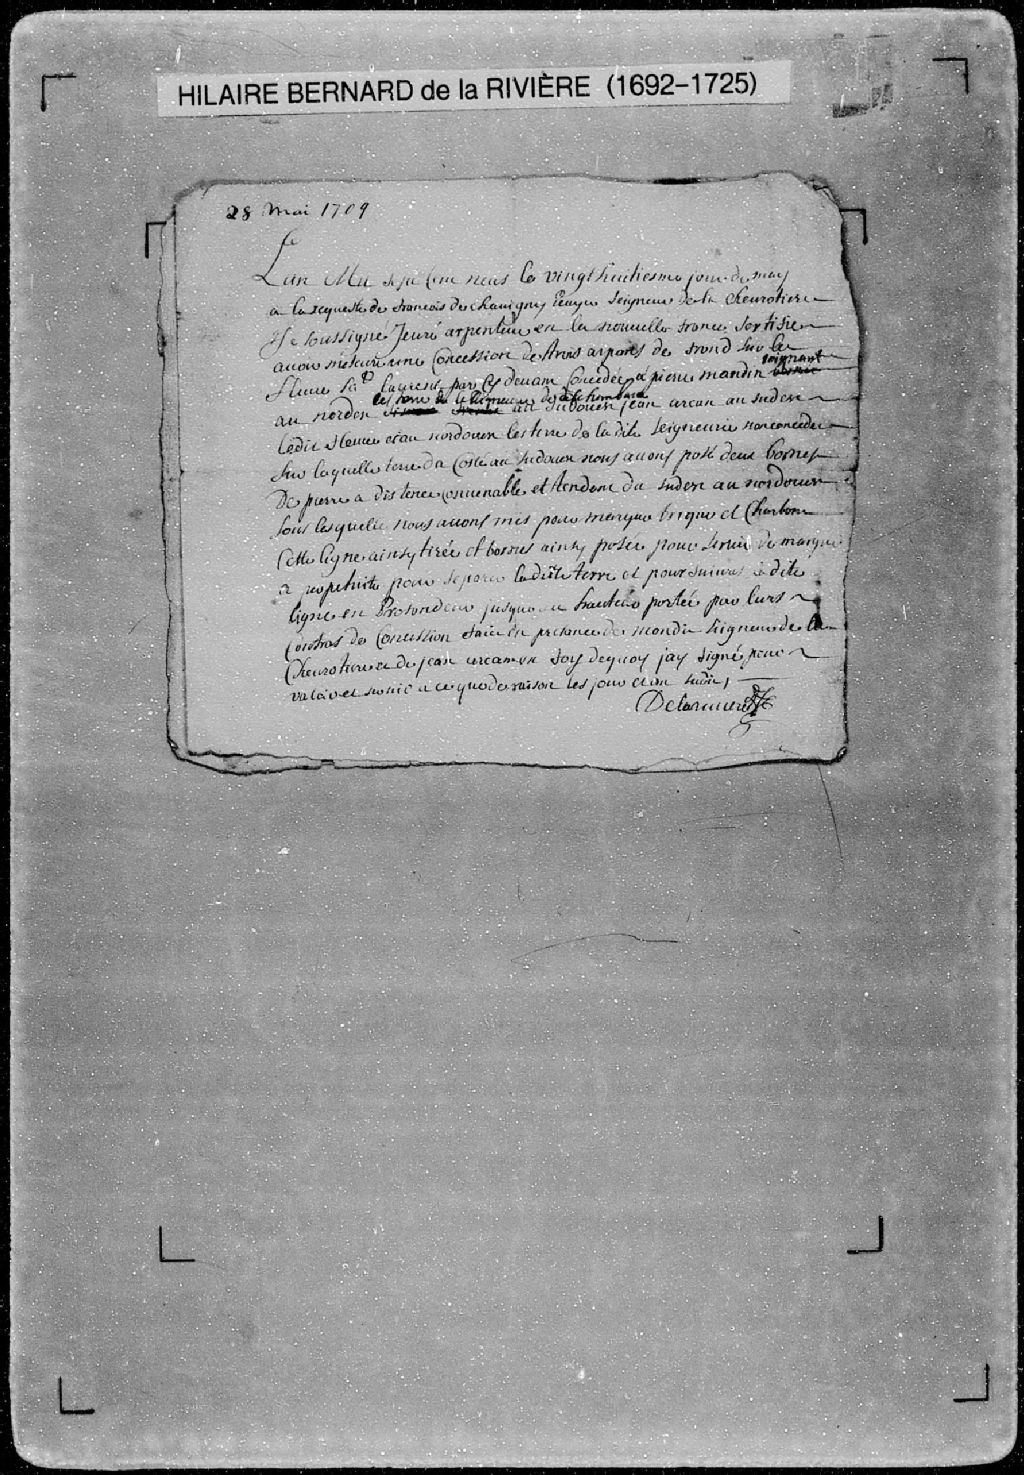 HILAIRE BERNARD de la RIVIÈRE (1692–1725)
28 Mai 1709
Lan Mil sept Cent neuf le vingt huitiesme jour de may
a la requeste de francois de chauigny Ecuyer Seigneur de la cheurotiere
Je soussigné Jeuré arpenteur en la nouuelle france sertifie
auoir mesuré une Concession de trois arpans de frond sur le
fleuue St Laurens par Cy deuant Concedée a pierre mandin joignant
au nordest les terre de au sudouest jean arcan au sudest
ledit fleuue et au nordouest les terre de la dite seigneurie non concedée
sur laquelle terre du Costé au sudouest nous auons posé deux bornes
De pierre a distence conuenable et tendant du sudest au nordouest
sous lesquelle nous auons mis pour marque brique et Charbon
Cette ligne ainsy tirée et bornes ainsy posée pour seruir de marque
a perpetuité pour separer la ditte terre et poursuiure la dite
ligne en Profondeur jusque au hauteur portée par leurs
Contras de Concession faict en presance de mondit seigneur de la
Cheurotiere et de jean arcan en foy dequoy jay signé pour
valoir et seruir a ce que de raison les jour et an susdit
Delariuiere